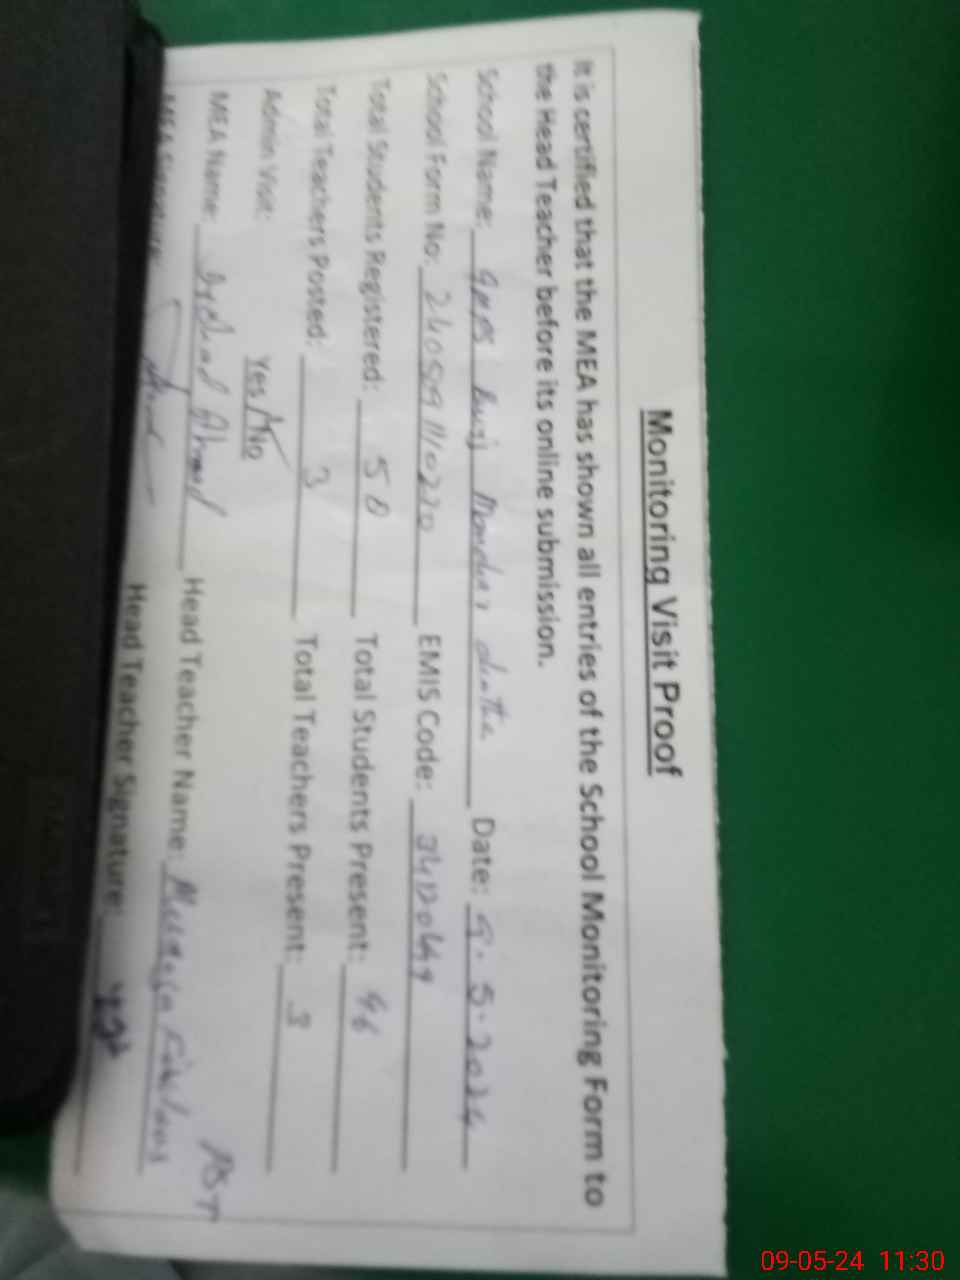 Monitoring Visit Proof
It is certified that the MEA has shown all entries of the School Monitoring Form to
the Head Teacher before its online submission.
School Name: Date: 9.5.2024
School Form No: EMIS Code:
Total Students Registered: 50 Total Students Present: 46
Total Teachers Posted: 3 Total Teachers Present: 3
Admin Visit: Yes/No
MEA Name: Ahmad Head Teacher Name: PST
MEA Signature: Head Teacher Signature:
09-05-24 11:30